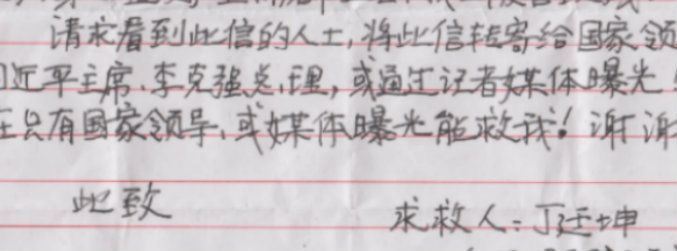 请求看到此信的人士,将此信转寄给国家领
近平主席、李克强总理,或通过记者媒体曝光
只有国家领导、或媒体曝光能救我!谢谢
此致
求救人:丁廷坤